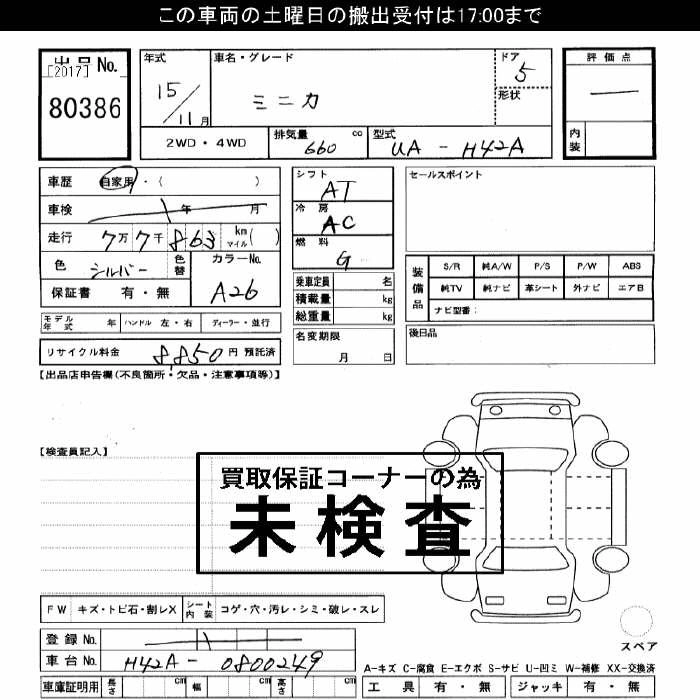 この車両の土曜日の搬出受付は17:00まで
出品 No.
[2017]
80386
年式 車名・グレード ドア 5
15/11月 ミニカ 形状
2WD・4WD 排気量 660 cc 型式 UA-H42A
評価点
内装
車歴 自家用・( )
車検 年 月
走行 7万7千863 km マイル( )
色 シルバー 色替 カラーNo. A26
保証書 有・無
モデル年式 年 ハンドル 左・右 ディーラー・並行
リサイクル料金 8,850円 預託済
シフト AT
冷房 AC
燃料 G
乗車定員 名
積載量 kg
総重量 kg
名変期限
月 日
セールスポイント
装備品 S/R 純A/W P/S P/W ABS
純TV 純ナビ 革シート 外ナビ エアB
ナビ型番:
後日品
【出品店申告欄(不良箇所・欠品・注意事項等)】
【検査員記入】
買取保証コーナーの為
未検査
FW キズ・トビ石・割レX シート内装 コゲ・穴・汚レ・シミ・破レ・スレ
登録 No.
車台 No. H42A-0800249
車庫証明用 長さ cm 幅 cm 高さ cm
スペア
A-キズ C-腐食 E-エクボ S-サビ U-凹ミ W-補修 XX-交換済
工具 有・無 ジャッキ 有・無